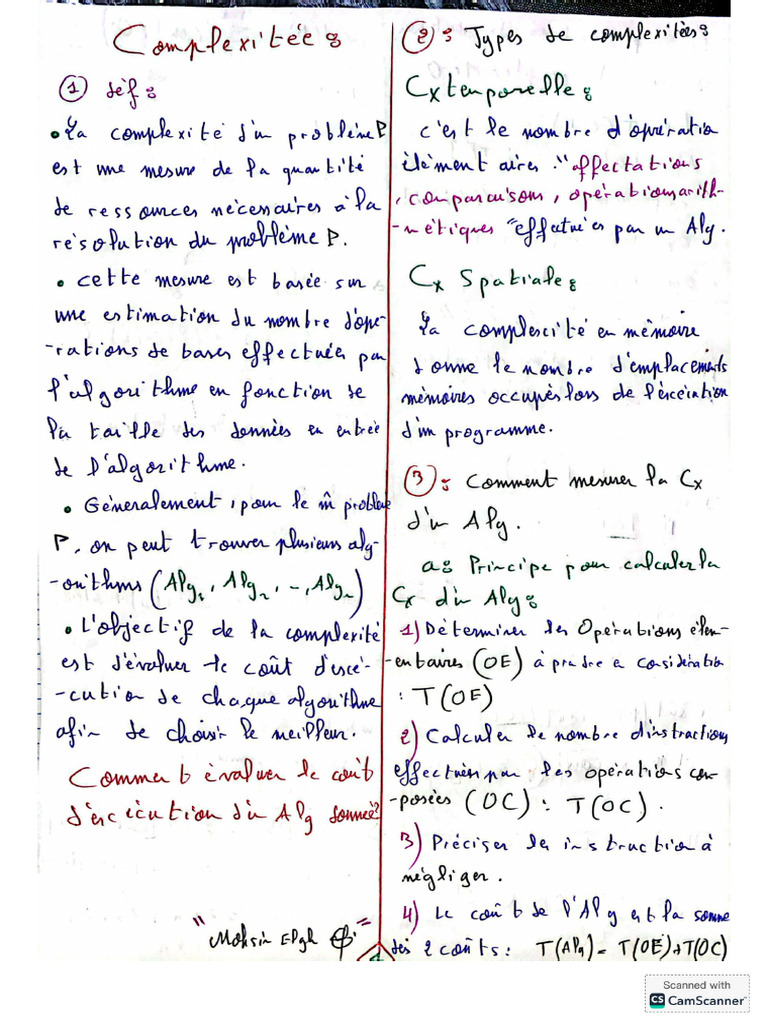 Complexitée :
① déf :
• La complexité d'un problème P
est une mesure de la quantité
de ressources nécessaires à la
résolution du problème P.
• cette mesure est basée sur
une estimation du nombre d'opé-
-rations de bases effectuées par
l'algorithme en fonction de
la taille des données en entrée
de l'algorithme.
• Géneralement, pour le m̂ problème
P, on peut trouver plusieurs alg-
-orithms (Alg1, Alg2, -, Algn)
• L'objectif de la complexité
est d'évaluer le coût d'exsé-
-cution de chaque algorithme
afin de choisir le meilleur.
Comment évaluer le coût
d'exécution d'un Alg donnée?
"Mohsin Elgh"
② : Types de complexitées :
Cx temporelle :
c'est le nombre d'opération
élémentaires. "affectations
, comparaisons, opérations arith-
-métiques" effectuées par un Alg.
Cx Spatiale :
La complexcité en mémoire
donne le nombre d'emplacements
mémoires occupés lors de l'éxcécution
d'un programme.
③ : Comment mesurer la Cx
d'un Alg.
a : Principe pour calculer la
Cx d'un Alg :
1) Déterminer les Opérations élém-
-entaires (OE) à prendre en considération
: T(OE)
2) Calculer le nombre d'instructions
effectuées par les opérations com-
-posées (OC) : T(OC).
3) Préciser les instruction à
négliger.
4) Le coût de l'Alg est la somme
des 2 coûts : T(Alg) = T(OE)+T(OC)
Scanned with
CS CamScanner